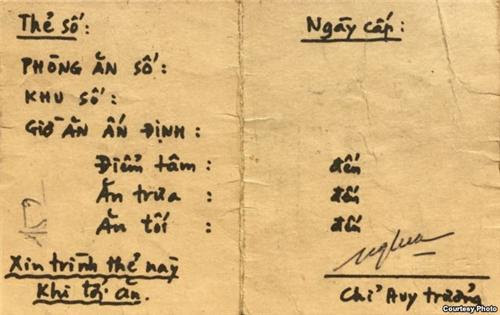 Thẻ số: Ngày cấp:
PHÒNG ĂN SỐ:
KHU SỐ:
GIỜ ĂN ẤN ĐỊNH:
Điểm tâm: đến
Ăn trưa: đến
Ăn tối: đến
Xin trình thẻ này
Khi tới ăn.
Chỉ huy trưởng
Courtesy Photo